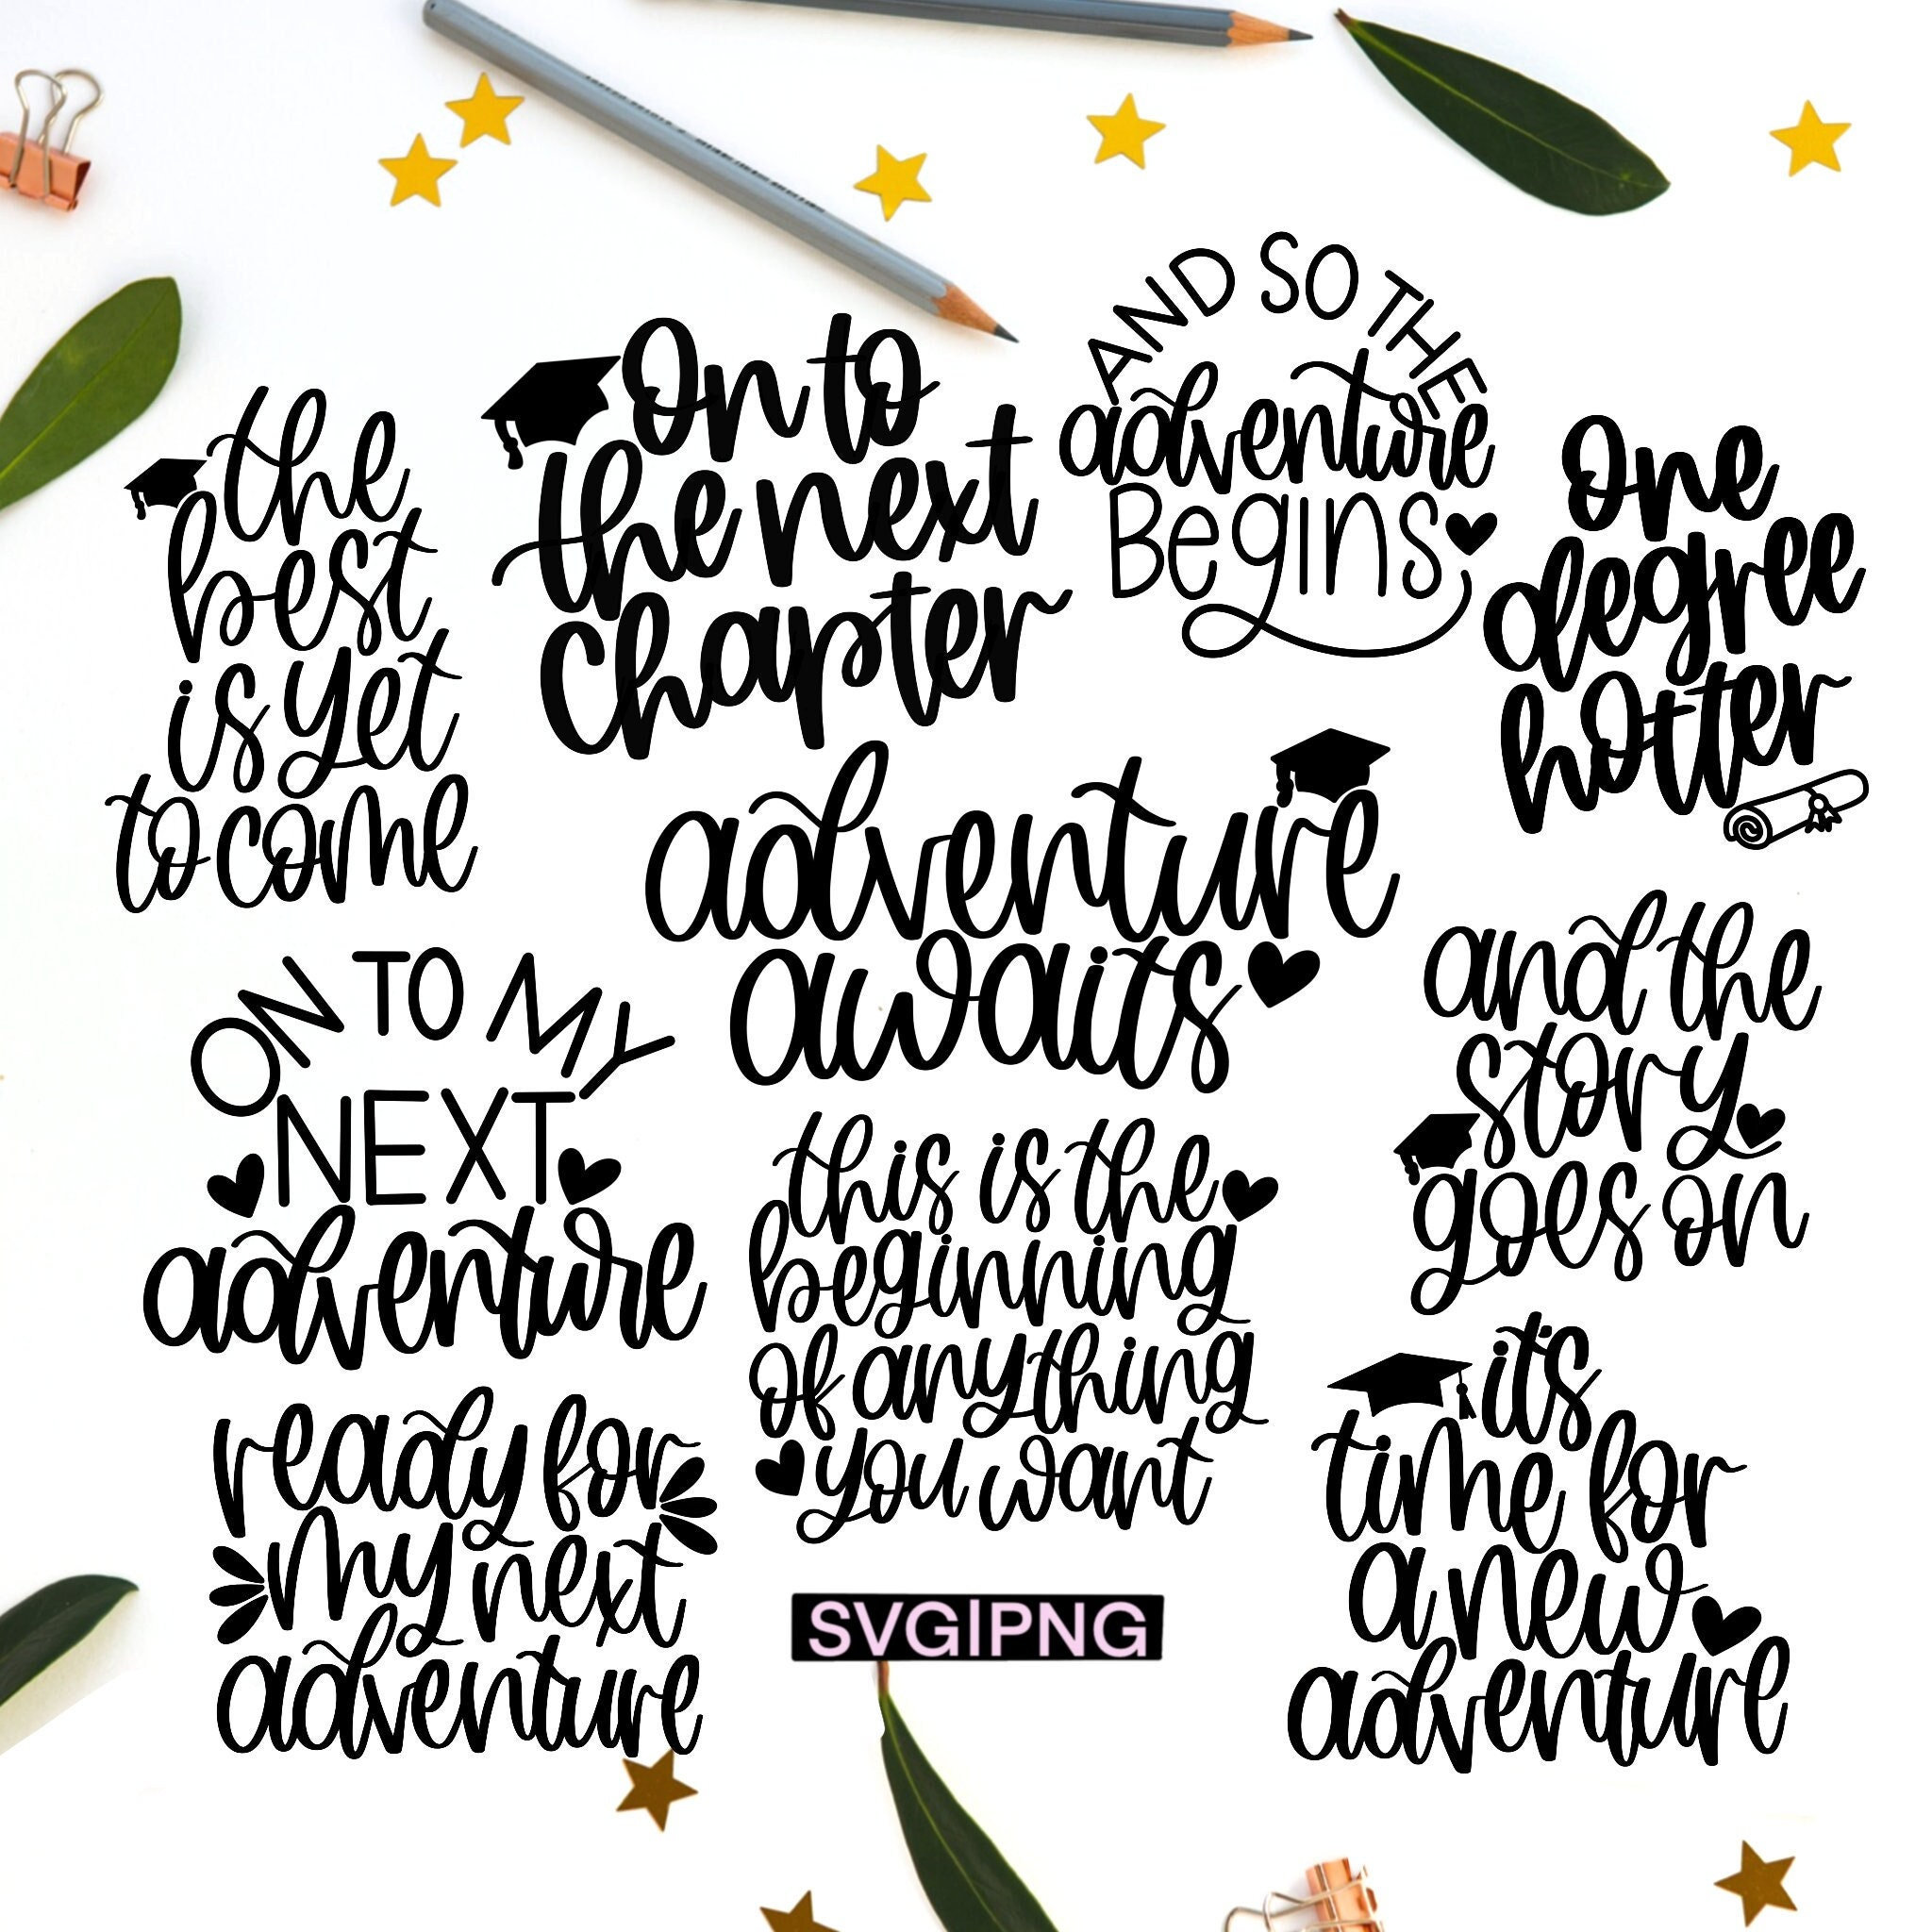 the
best
is yet
to come
On to
the next
chapter
AND SO THE
adventure
Begins
One
degree
hotter
adventure
awaits
ON TO MY
NEXT
adventure
this is the
beginning
of anything
you want
and the
story
goes on
ready for
my next
adventure
it's
time for
a new
adventure
SVG|PNG